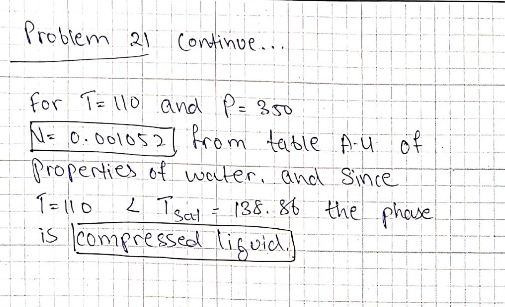 Problem 21 Continue...
for T=110 and P=350
V= 0.001052 from table A-4 of
Properties of water. and Since
T=110 < Tsat = 138.86 the phase
is compressed liquid.